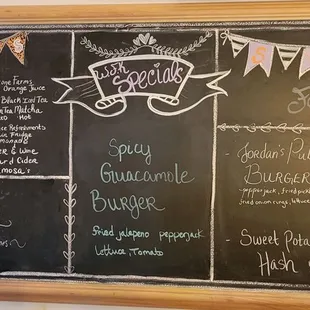 one Farms
Orange Juice
Black Iced Tea
Tea Matcha
Hot
Refreshments
in Fridge
& Wine
Cider
mosa's
W&H
Specials
Spicy
Guacamole
Burger
fried jalapeno pepperjack
Lettuce, Tomato
S
S
- Jordan's Pub
Burger
- pepperjack, fried pick
fried onion rings, lettuce
- Sweet Pota
Hash